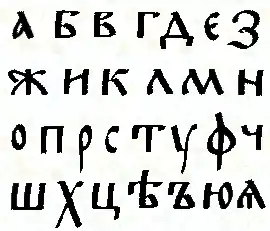 А Б В Г Д Є З
Ж И К Л М Н
О П Р С Т У Ф Ч
Ш Х Ц Ѣ Ъ Ю Ѧ